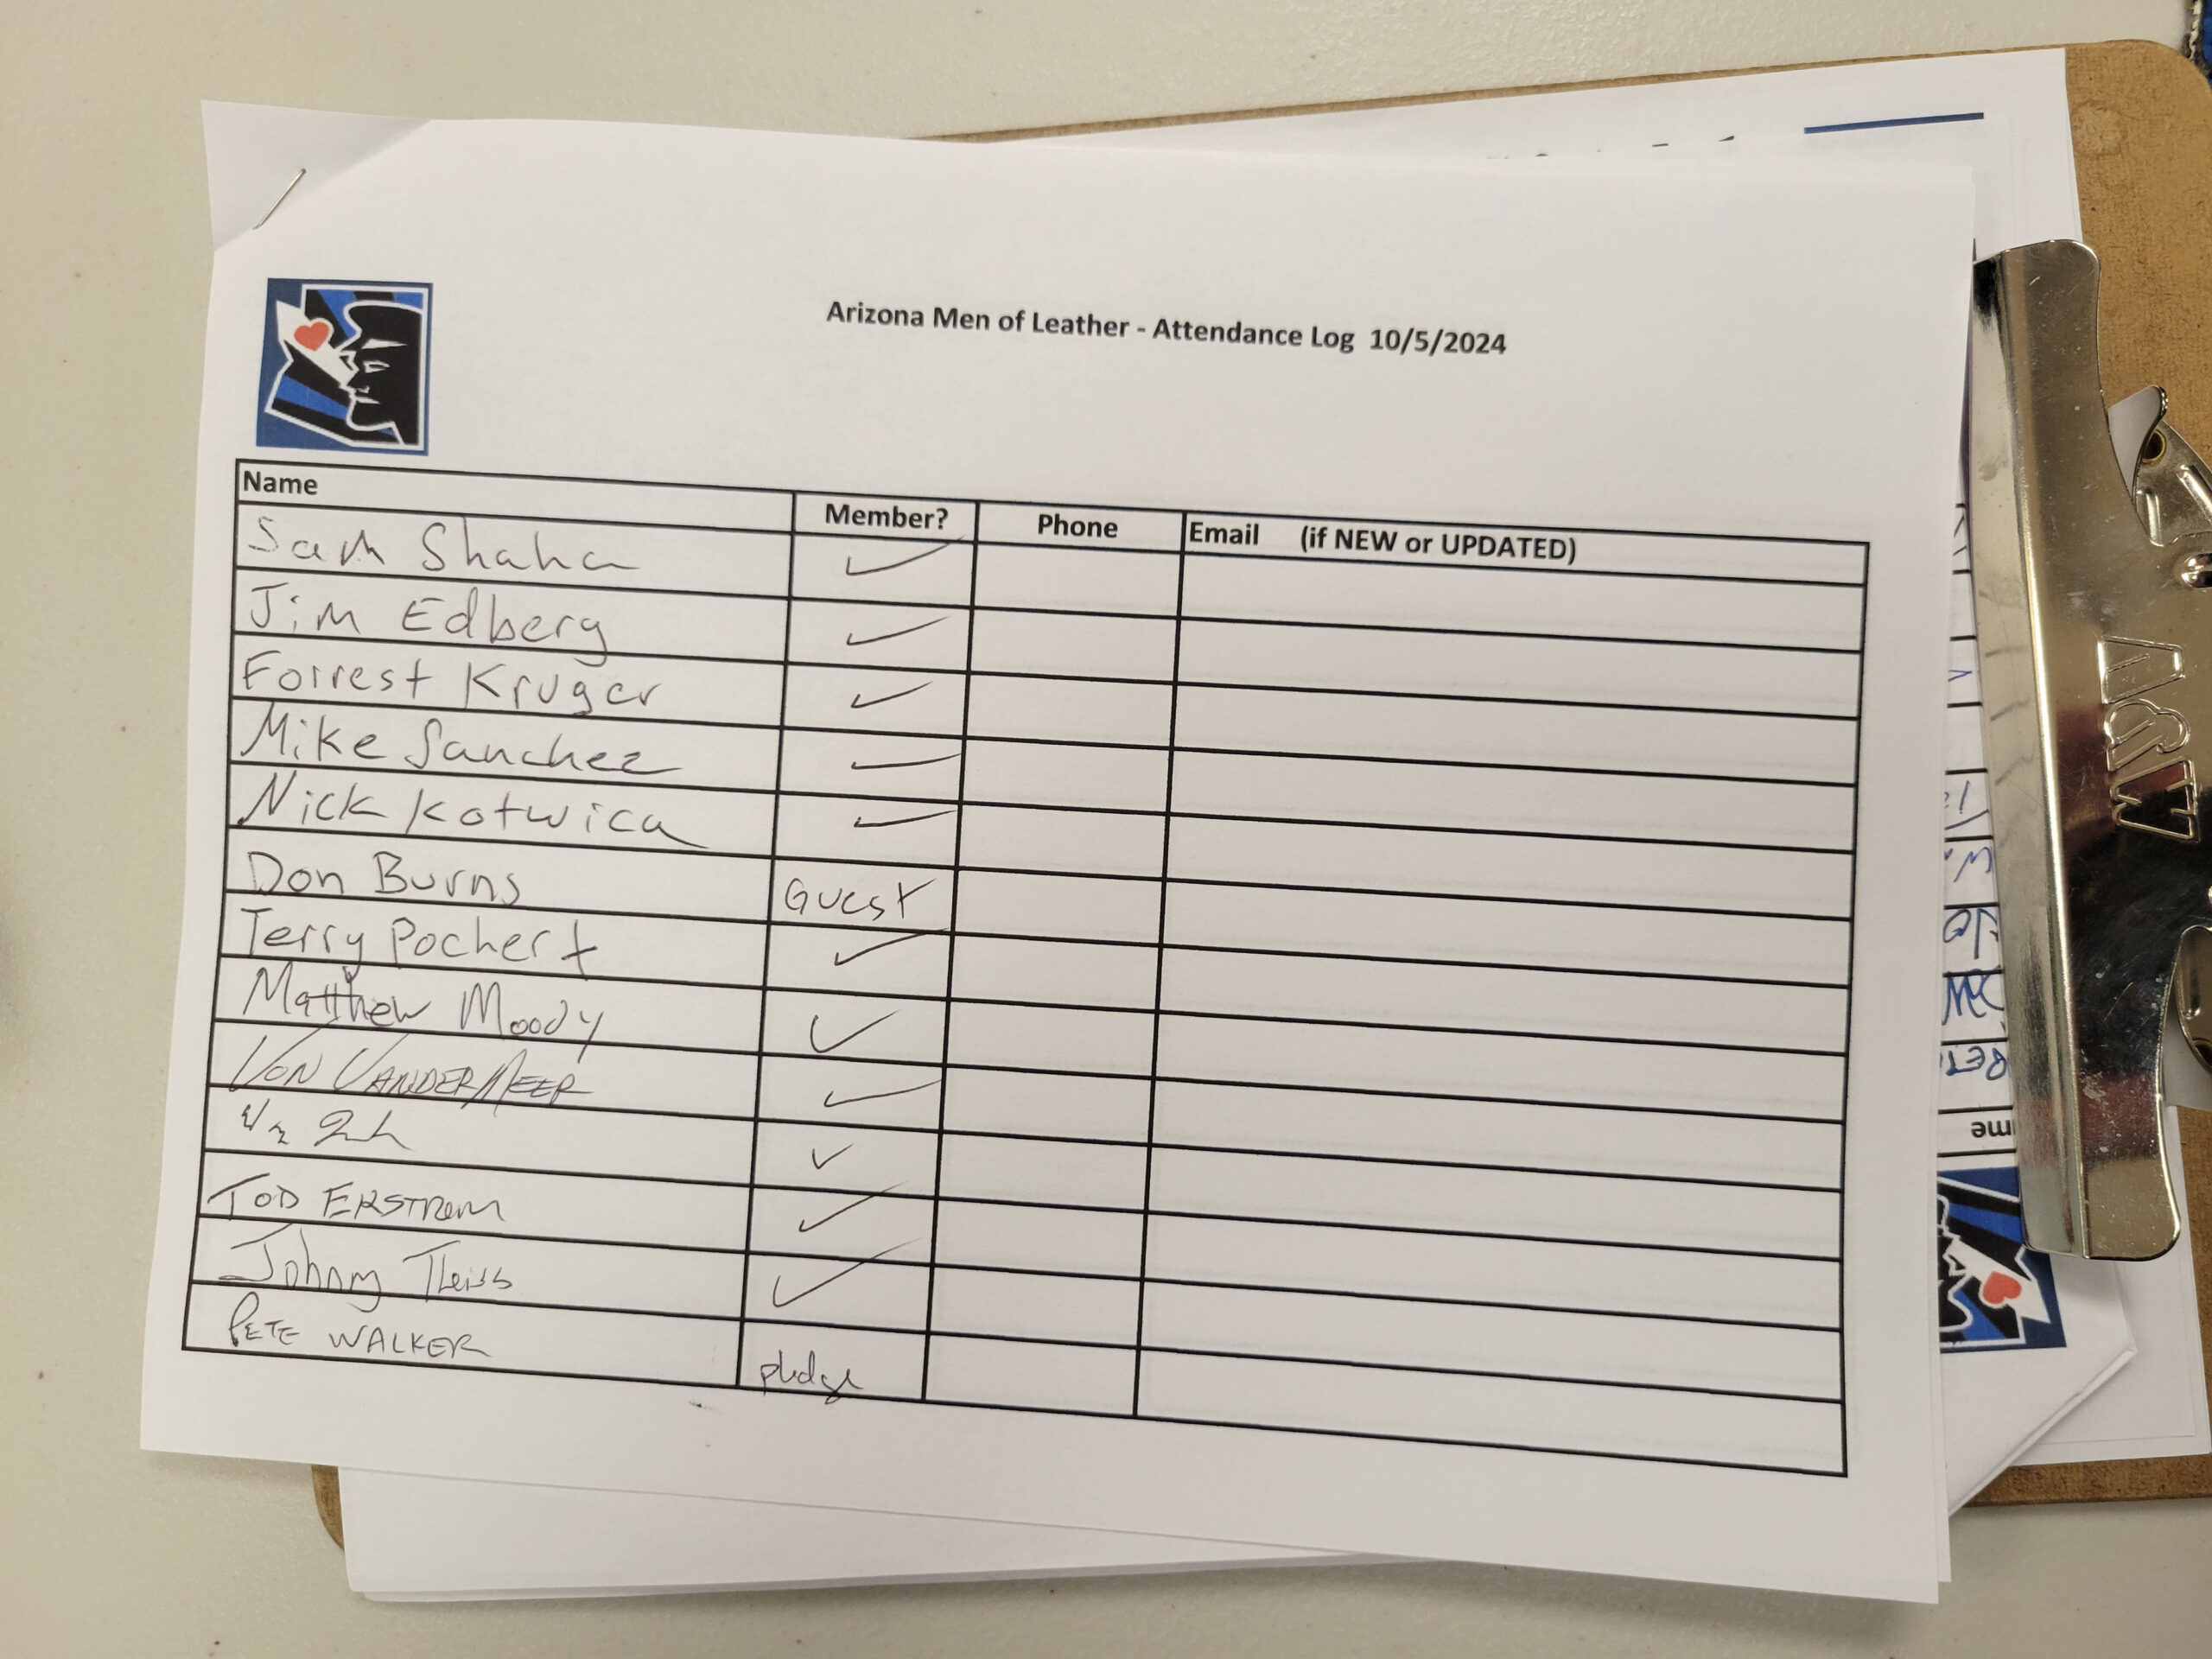 Arizona Men of Leather - Attendance Log 10/5/2024
Name Member? Phone Email (if NEW or UPDATED)
Sam Shaha ✓
Jim Edberg ✓
Forrest Kruger ✓
Mike Sanchez ✓
Nick Kotwica ✓
Don Burns Guest
Terry Pochert ✓
Matthew Moody ✓
VON VANDERMEER ✓
✓
TOD ERSTROM ✓
Johnny Theiss ✓
PETE WALKER pledge
A&W